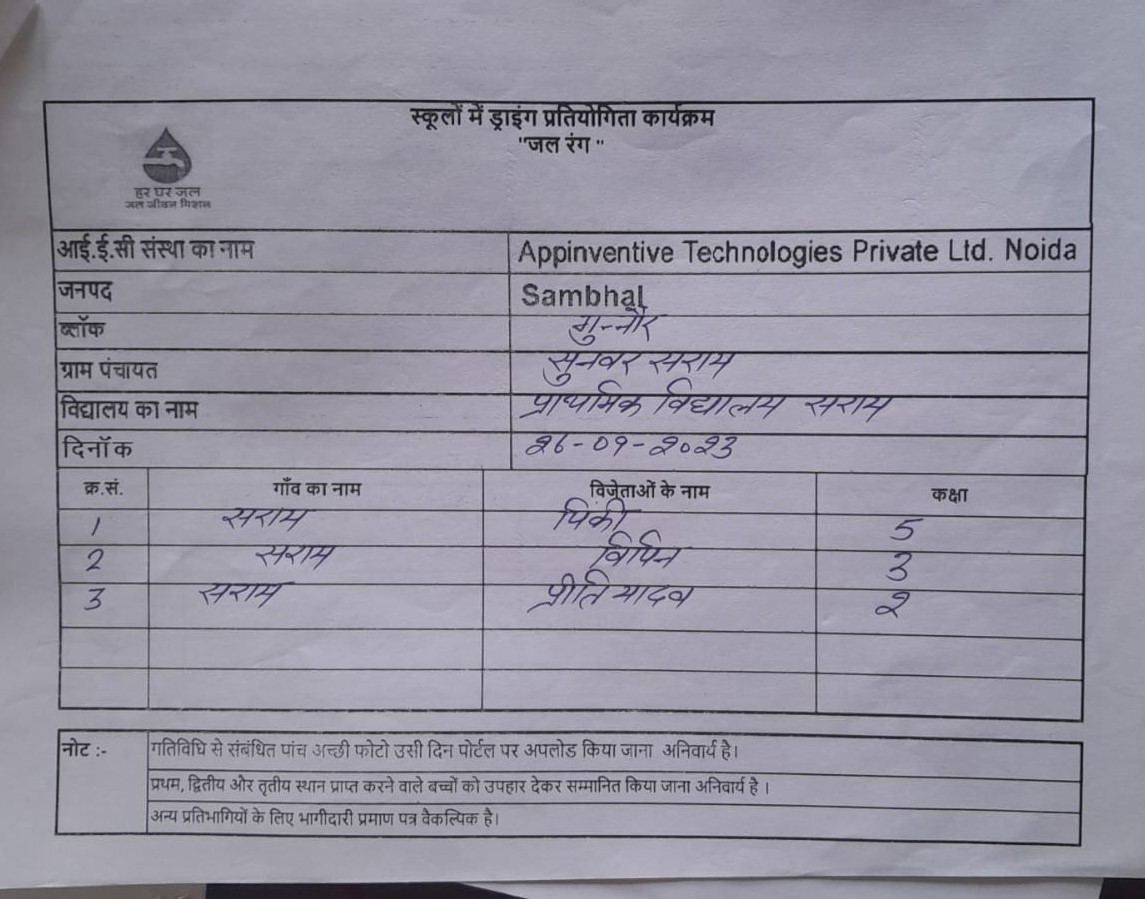 स्कूलों में ड्राइंग प्रतियोगिता कार्यक्रम
"जल रंग "
हर घर जल
जल जीवन मिशन
आई.ई.सी संस्था का नाम Appinventive Technologies Private Ltd. Noida
जनपद Sambhal
ब्लॉक गुन्नौर
ग्राम पंचायत सुनवर सराय
विद्यालय का नाम प्राथमिक विद्यालय सराय
दिनॉक २६-०9-२०२३
क्र.सं. गाँव का नाम विजेताओं के नाम कक्षा
1 सराय पिंकी 5
2 सराय विपिन 3
3 सराय प्रीति यादव २
नोट :- गतिविधि से संबंधित पांच अच्छी फोटो उसी दिन पोर्टल पर अपलोड किया जाना अनिवार्य है।
प्रथम, द्वितीय और तृतीय स्थान प्राप्त करने वाले बच्चों को उपहार देकर सम्मानित किया जाना अनिवार्य है ।
अन्य प्रतिभागियों के लिए भागीदारी प्रमाण पत्र वैकल्पिक है।